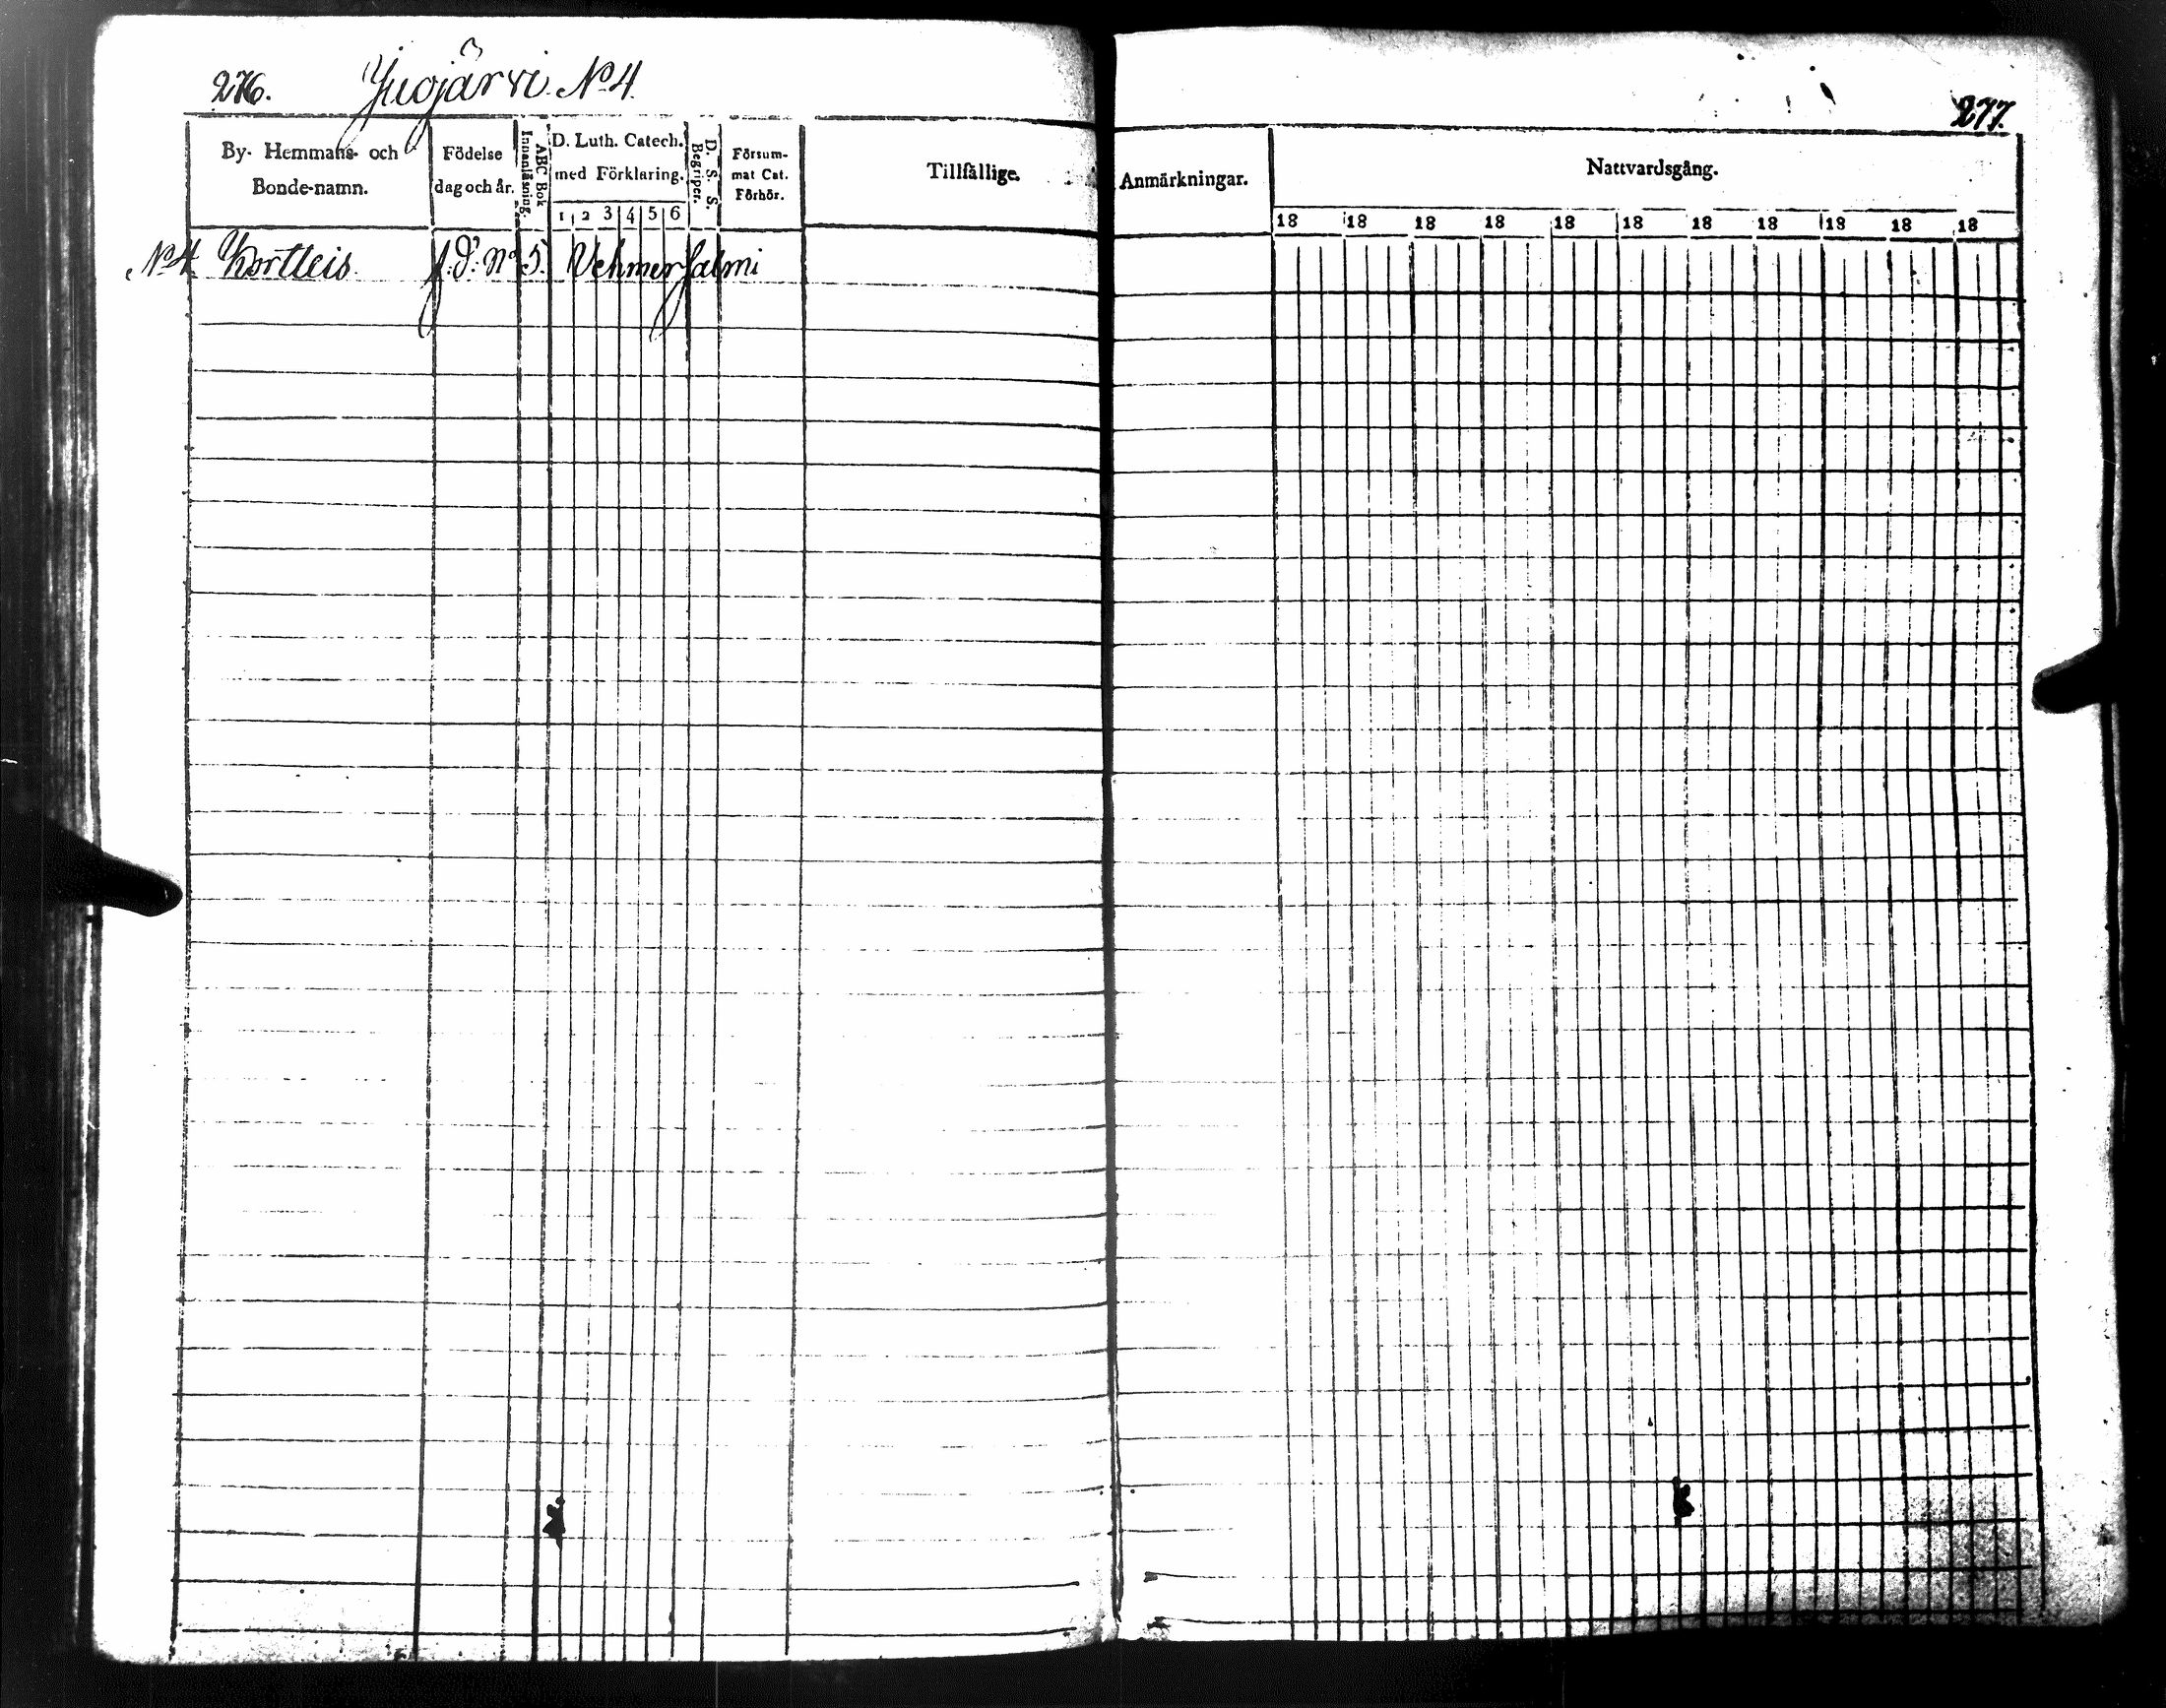 276. Jugjärvi. No 4.
277.
By- Hemmans- och
Bonde-namn.
Födelse
dag och år.
ABC Bok
Innanläsning.
D. Luth. Catech.
med Förklaring.
1 2 3 4 5 6
D. S. S.
Begriper.
Försum-
mat Cat.
Förhör.
Tillfällige.
Anmärkningar.
Nattvardsgång.
18 18 18 18 18 18 18 18 18 18 18
No 4. No 5. Vehmersalmi